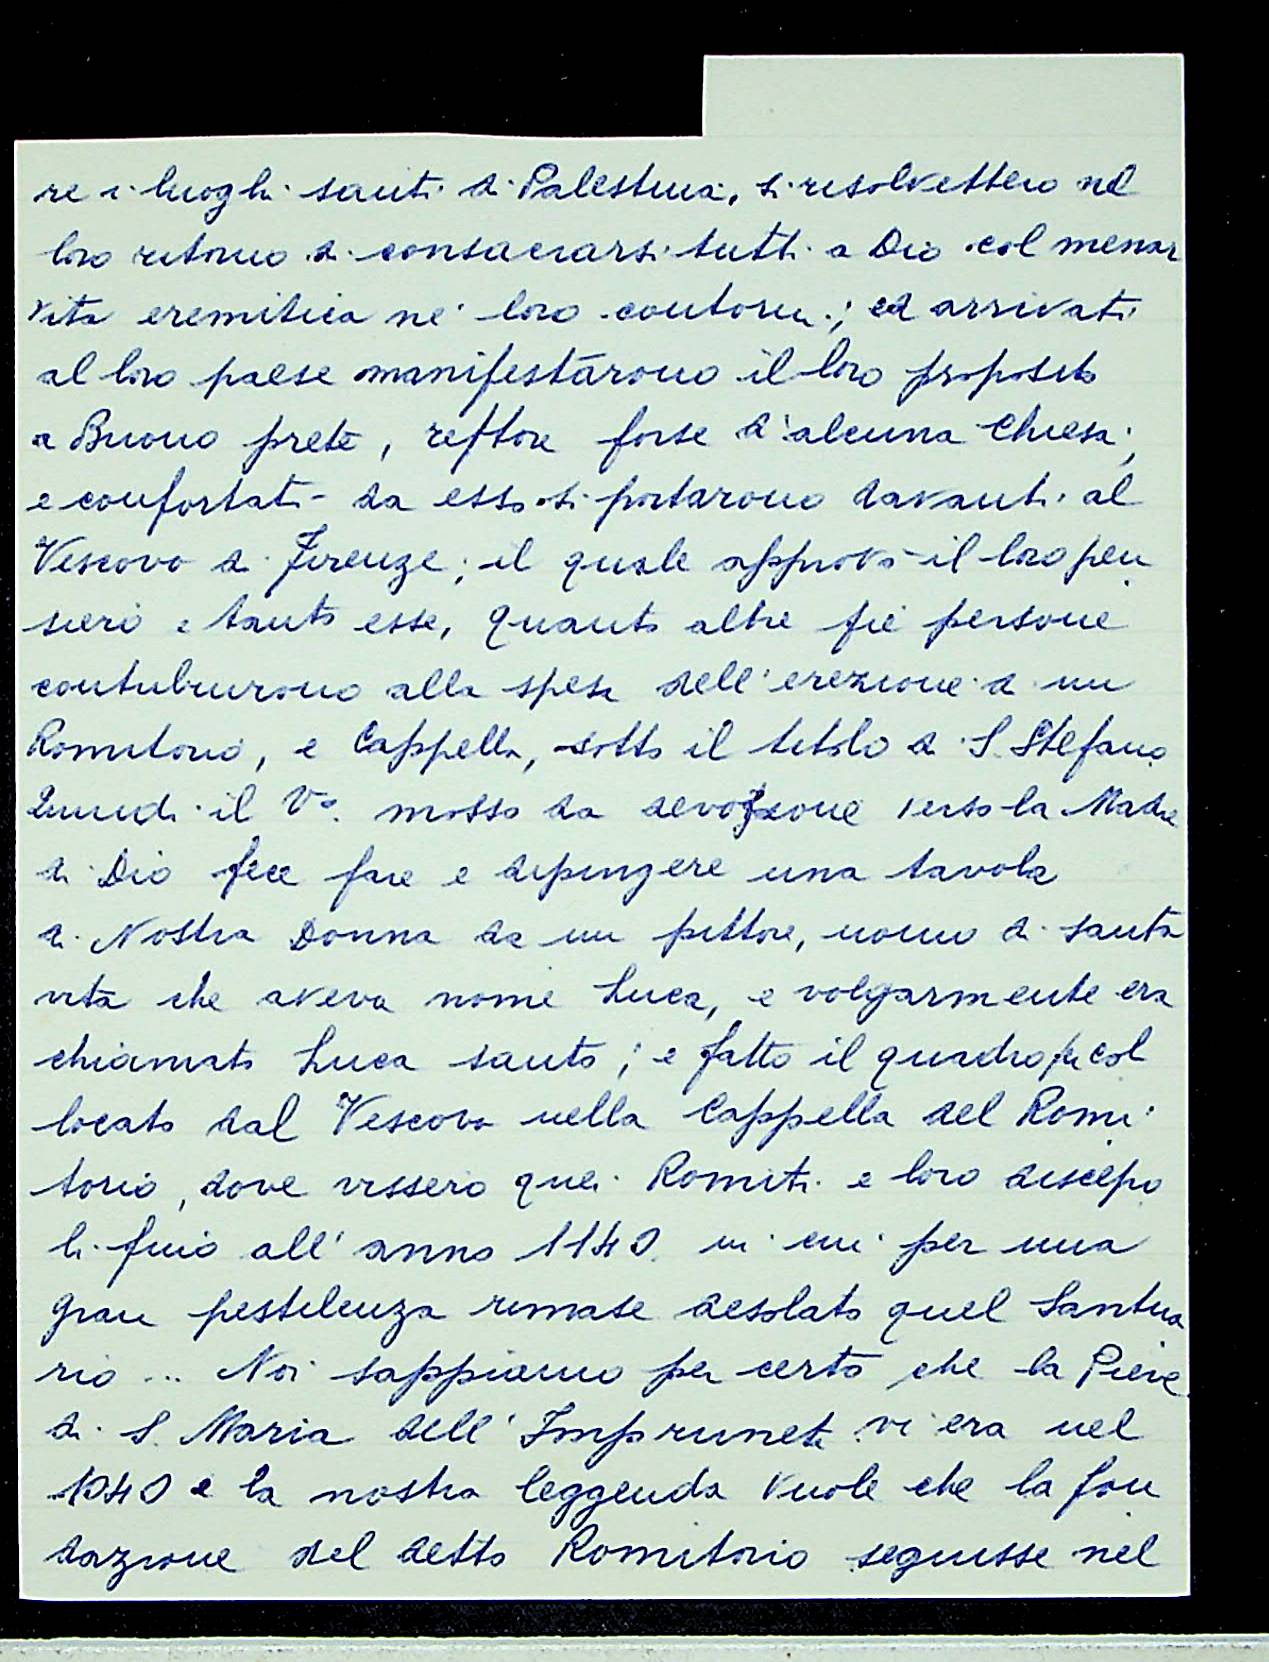 re i luoghi santi di Palestina, si risolvettero nel
loro ritorno di consacrarsi tutti a Dio col menar
vita eremitica ne' loro contorni; ed arrivati
al loro paese manifestarono il loro proposito
a Buono prete, rettore forse d'alcuna Chiesa;
e confortati da esso si portarono davanti al
Vescovo di Firenze; il quale approvò il loro pen
siero e tanto esse, quanto altre pie persone
contribuirono alla spesa dell'erezione di un
Romitorio, e Cappella, sotto il titolo di S. Stefano
Quindi il Vo. mosso da devozione verso la Madre
di Dio fece fare e dipingere una tavola
di Nostra Donna da un pittore, uomo di santa
vita che aveva nome Luca, e volgarmente era
chiamato Luca santo; e fatto il quadro fu col
locato dal Vescovo nella Cappella del Romi
torio, dove vissero quei Romiti e loro discepo
li fino all'anno 1140 in cui per una
gran pestilenza rimase desolato quel Santua
rio ... Noi sappiamo per certo che la Pieve
di S. Maria dell'Impruneta vi era nel
1040 e la nostra leggenda vuole che la fon
dazione del detto Romitorio seguisse nel